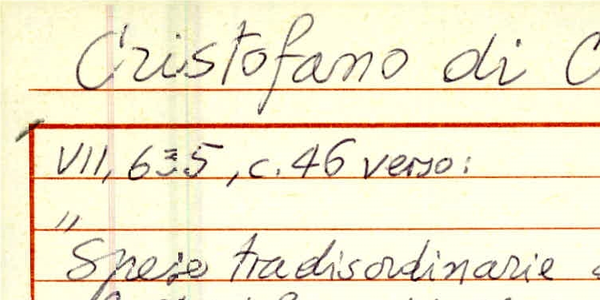 Cristofano di C
VII, 635, c. 46 verso:
"
Spese tradisordinarie